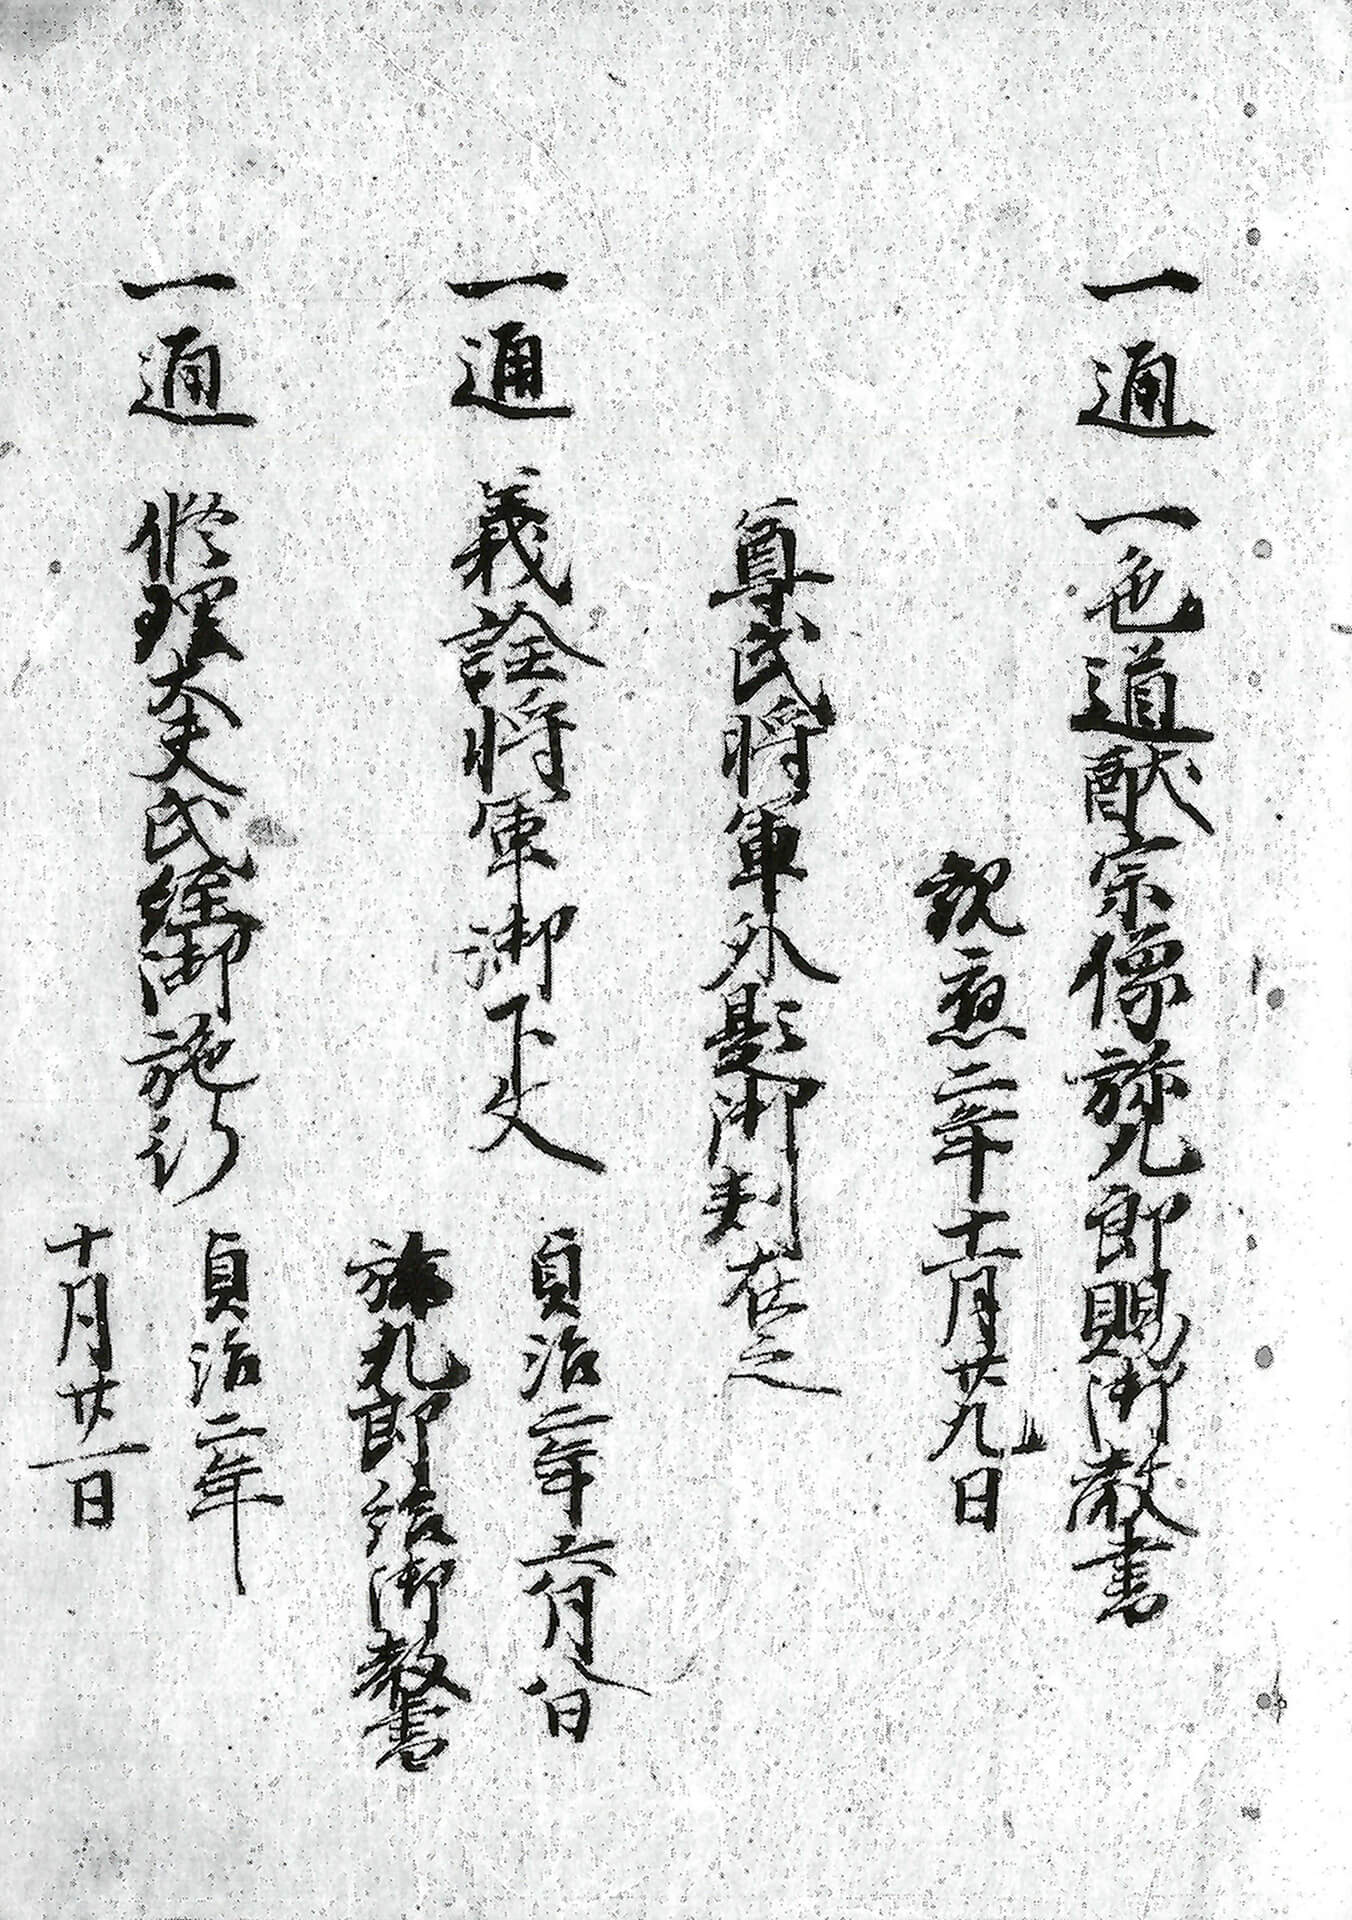 一通 一色道猷宗像弥九郎賜御教書
観応二年十一月廿九日
尊氏将軍外題御判在之
一通 義詮将軍御下文
貞治二年六月八日
弥九郎給御教書
一通 修理大夫氏経御施行
貞治二年
十月廿一日